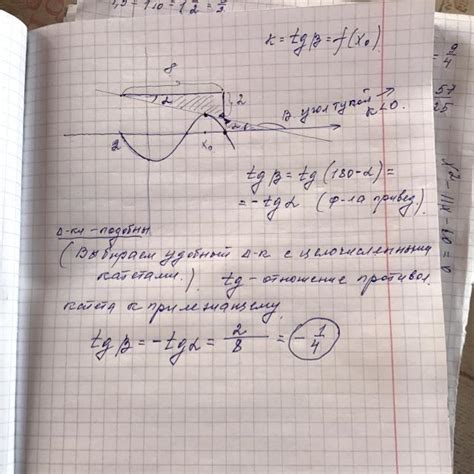 1,5 - 1,0 = 1 1/2 = 3/2
9/4
57
25
k = tg β = f(x₀)
8
α
2
β угол тупой
k<0.
2
x₀
α
tg β = tg (180-α) =
= - tg α (ф-ла привед.)
Δ-ки - подобны
(Выбираем удобный Δ-к с целочисленными
катетами.) tg - отношение противол.
катета к прилежащему.
tg β = - tg α = 2/8 = - 1/4
x² - 11x - 60 = 0